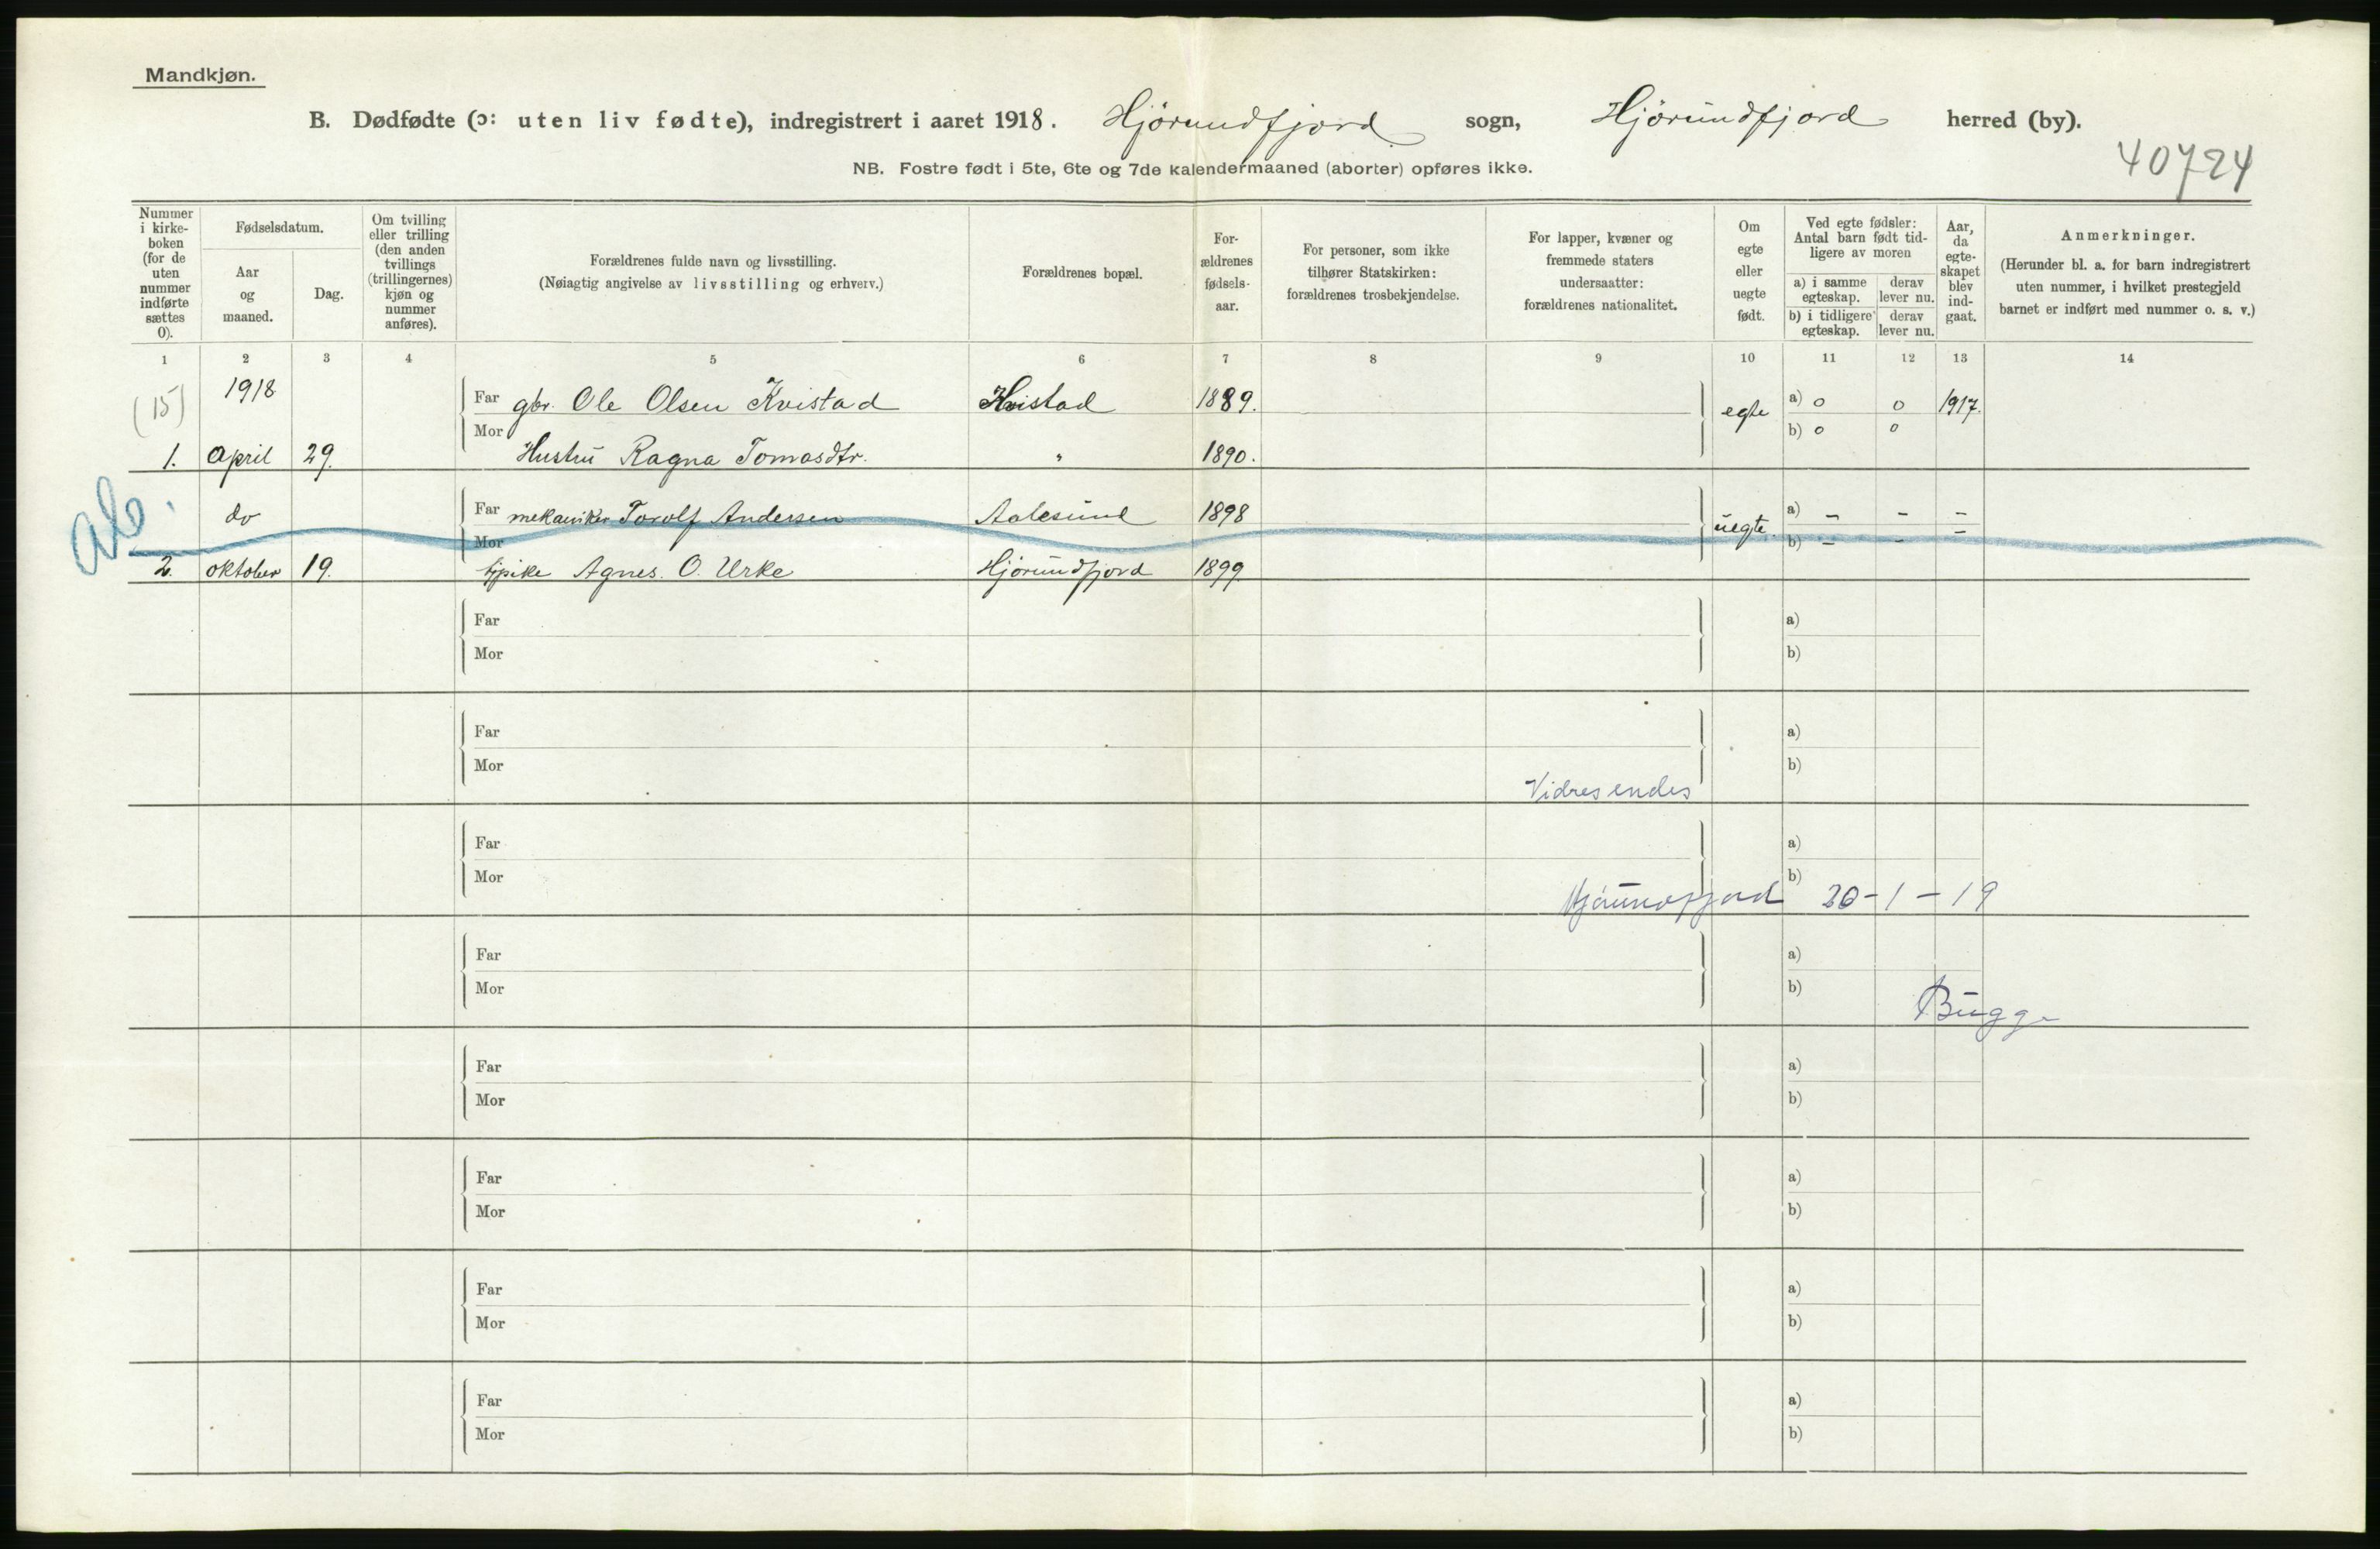 Mandkjøn.
B. Dødfødte (ɔ: uten liv fødte), indregistrert i aaret 1918. Hjörundfjord sogn, Hjörundfjord herred (by).
NB. Fostre født i 5te, 6te og 7de kalendermaaned (aborter) opføres ikke.
40724
Nummer i kirke-boken (for de uten nummer indførte sættes 0).
Fødselsdatum.
Aar og maaned.
Dag.
Om tvilling eller trilling (den anden tvillings (trillingernes) kjøn og nummer anføres).
Forældrenes fulde navn og livsstilling.
(Nøiagtig angivelse av livsstilling og erhverv.)
Forældrenes bopæl.
For-ældrenes fødsels-aar.
For personer, som ikke tilhører Statskirken: forældrenes trosbekjendelse.
For lapper, kvæner og fremmede staters undersaatter: forældrenes nationalitet.
Om egte eller uegte født.
Ved egte fødsler: Antal barn født tid-ligere av moren
a) i samme egteskap.
derav lever nu.
b) i tidligere egteskap.
derav lever nu.
Aar, da egte-skapet blev ind-gaat.
Anmerkninger.
(Herunder bl. a. for barn indregistrert uten nummer, i hvilket prestegjeld barnet er indført med nummer o. s. v.)
1 2 3 4 5 6 7 8 9 10 11 12 13 14
(15) 1918 Far gbr. Ole Olsen Kvistad Kvistad 1889. egte a) 0 0 1917.
Mor b) 0 0
1. April 29. Hustru Ragna Tomasdtr. " 1890.
do Far mekaniker Torolf Andersen Aalesund 1898 uegte. a) - - -
Mor b) - - -
2. oktober 19. pike Agnes O. Urke Hjörundfjord 1899
Far a)
Mor b)
Far a)
Mor b)
Vidresendes
Far a)
Mor b)
Hjörundfjord 20-1-19
Far a)
Mor b)
Bugge
Far a)
Mor b)
Far a)
Mor b)
Far a)
Mor b)
Far a)
Mor b)